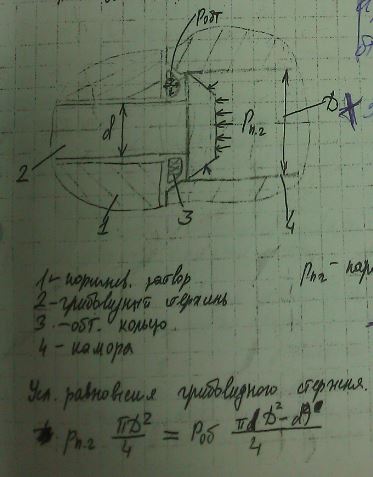 Pобт
d
Pп.г
D
2
1
3
4
1 - поршнев. затвор
2 - грибовидный стержень
3 - обт. кольцо
4 - камора
Pп.г -
Усл. равновесия грибовидного стержня.
Pп.г πD²/4 = Pоб π(D²-d²)/4